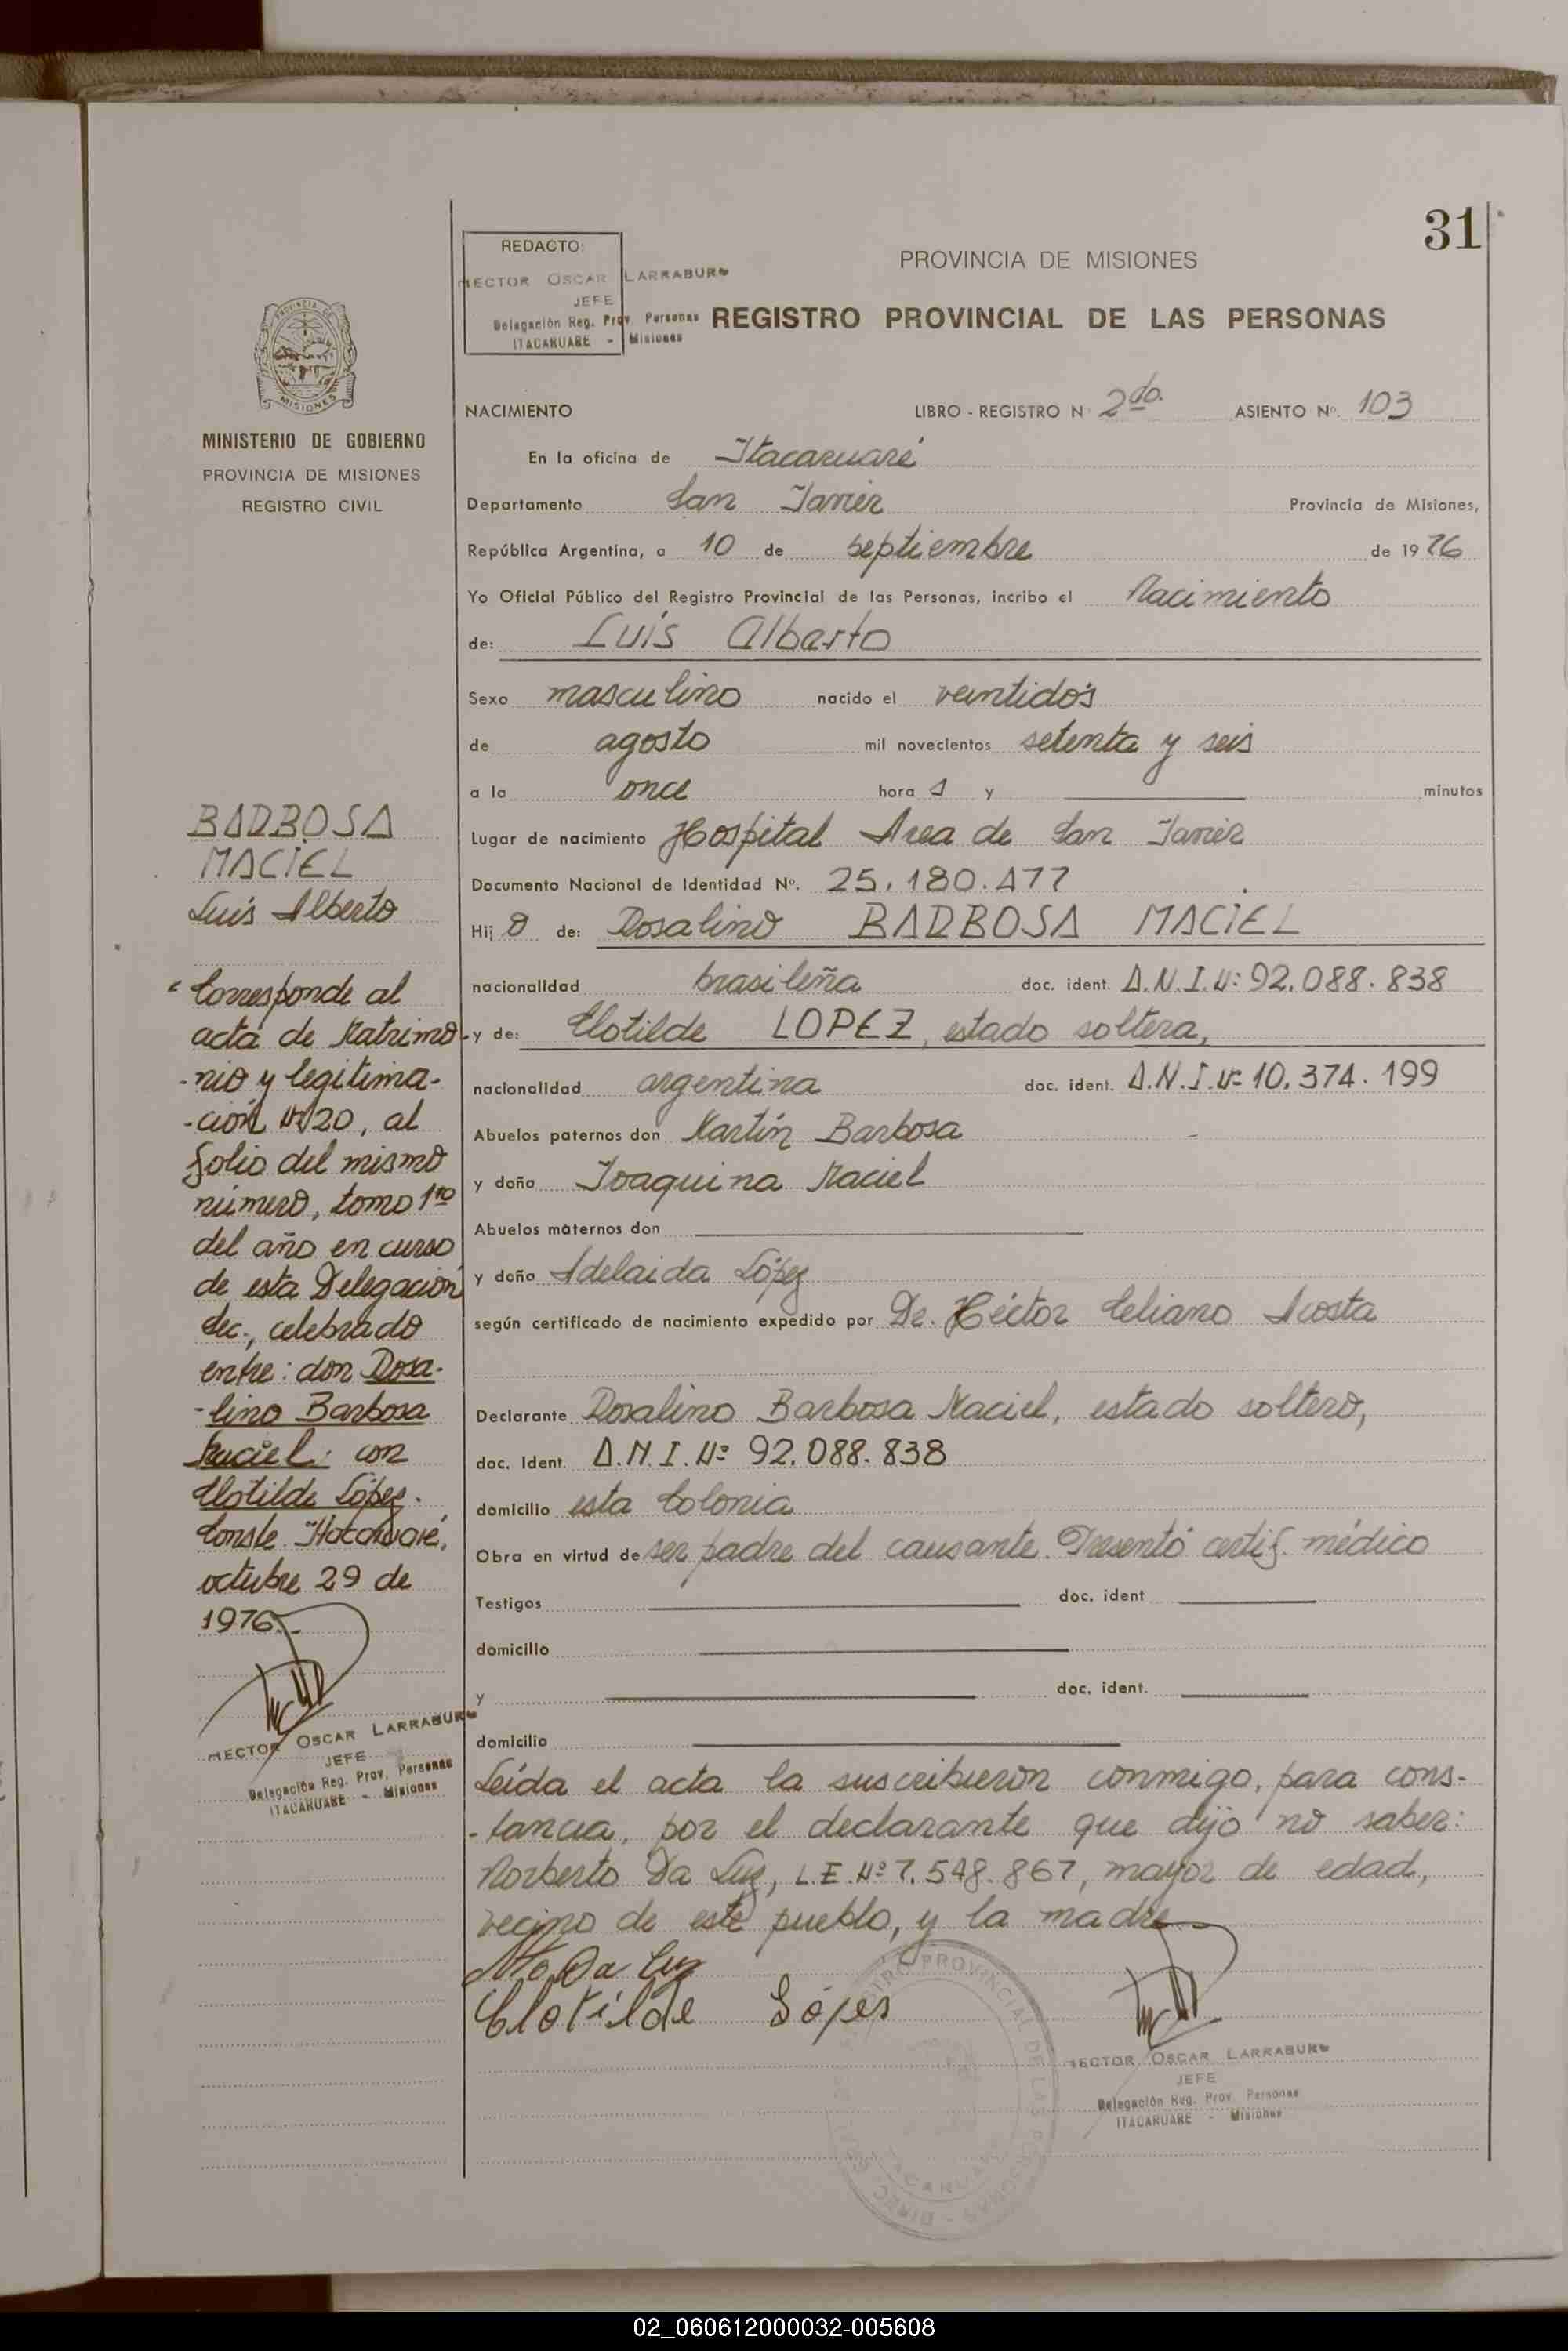 31
REDACTO:
HECTOR OSCAR LARRABURU
JEFE
Delegación Reg. Prov. Personas
ITACARUARE - Misiones
PROVINCIA DE MISIONES
REGISTRO PROVINCIAL DE LAS PERSONAS
MISIONES
MINISTERIO DE GOBIERNO
PROVINCIA DE MISIONES
REGISTRO CIVIL
NACIMIENTO LIBRO - REGISTRO N 2do. ASIENTO Nº. 103
En la oficina de Itacaruaré
Departamento San Javier Provincia de Misiones,
República Argentina, a 10 de septiembre de 1976
Yo Oficial Público del Registro Provincial de las Personas, incribo el Nacimiento
de: Luis Alberto
Sexo masculino nacido el veintidós
de agosto mil novecientos setenta y seis
a la once hora s y minutos
Lugar de nacimiento Hospital Area de San Javier
Documento Nacional de Identidad Nº. 25.180.477
Hij o de: Rosalino BARBOSA MACIEL
nacionalidad brasileña doc. ident. D.N.I.Nº 92.088.838
y de: Clotilde LOPEZ, estado soltera,
nacionalidad argentina doc. ident. D.N.I.Nº 10.374.199
Abuelos paternos don Martín Barbosa
y doña Joaquina Maciel
Abuelos maternos don
y doña Adelaida López
según certificado de nacimiento expedido por Dr. Héctor Celiano Acosta
Declarante Rosalino Barbosa Maciel, estado soltero,
doc. Ident. D.N.I.Nº 92.088.838
domicilio esta Colonia
Obra en virtud de ser padre del causante. Presentó certif. médico
Testigos doc. ident
domicilio
y doc. ident.
domicilio
Leída el acta la suscribieron conmigo, para cons-
-tancia, por el declarante que dijo no saber:
Norberto Da Luz, L.E.Nº 7.548.867, mayor de edad,
vecino de este pueblo, y la madre
Nto Da Luz
Clotilde Lópes
HECTOR OSCAR LARRABURU
JEFE
Delegación Reg. Prov. Personas
ITACARUARE - Misiones
BARBOSA
MACIEL
Luis Alberto
Corresponde al
acta de Matrimo-
-nio y legitima-
-ción Nº 20, al
folio del mismo
número, tomo 1ro
del año en curso
de esta Delegación
Sec., celebrado
entre: don Rosa-
-lino Barbosa
Maciel: con
Clotilde López.
Conste. Itacaruaré,
octubre 29 de
1976.-
HECTOR OSCAR LARRABURU
JEFE
Delegación Reg. Prov. Personas
ITACARUARE - Misiones
02_060612000032-005608